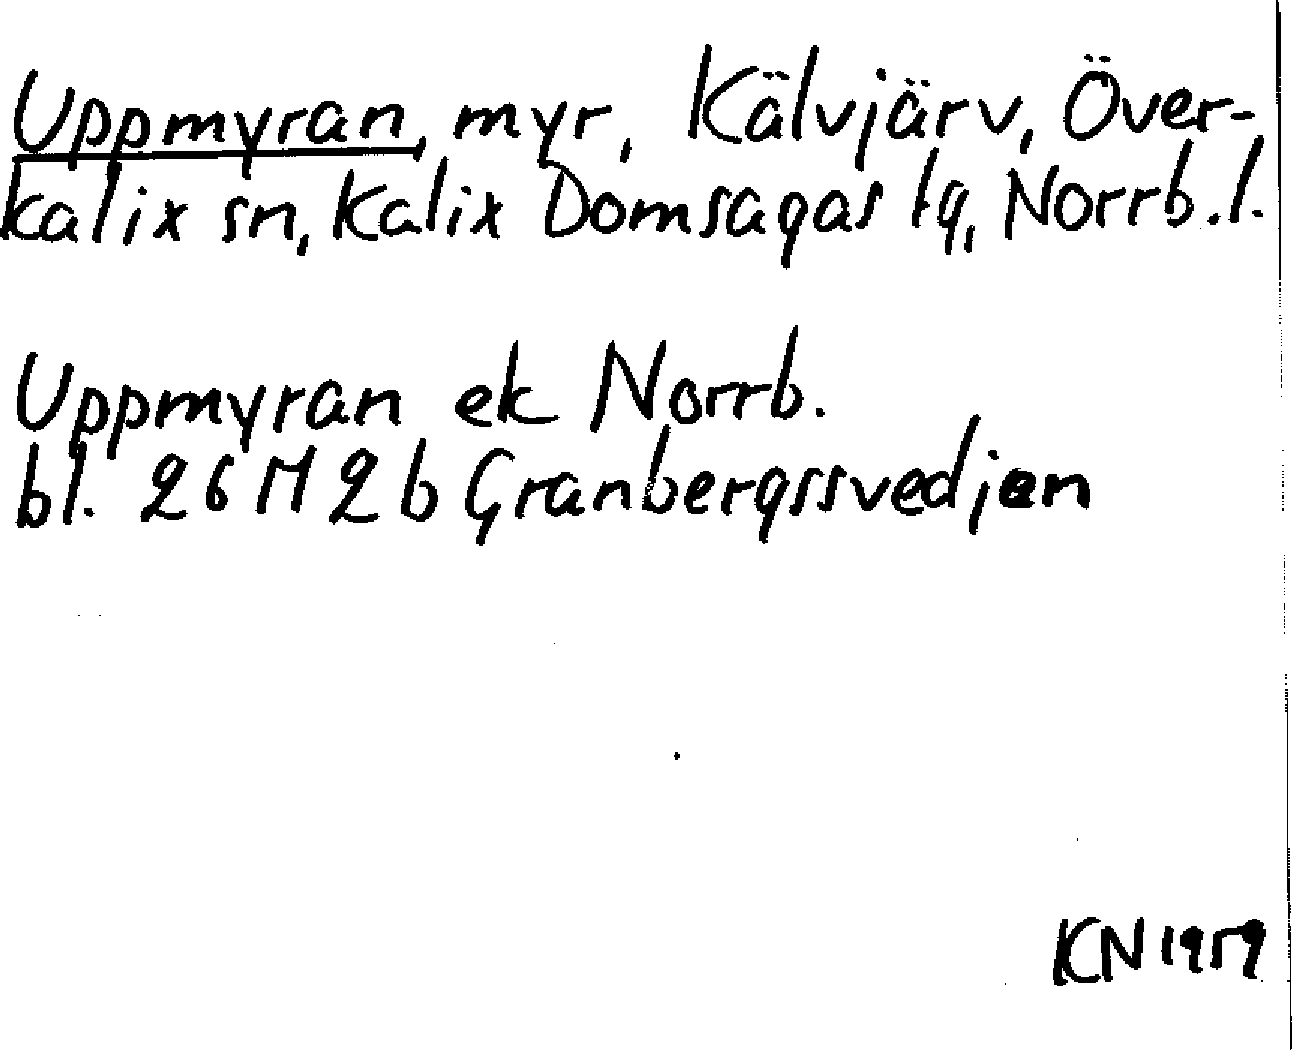 Uppmyran, myr, Kälvjärv, Över-
kalix sn, Kalix Domsagas lg, Norrb.l.
Uppmyran ek Norrb.
bl. 26 M 2 b Granbergssvedjen
KN 1959